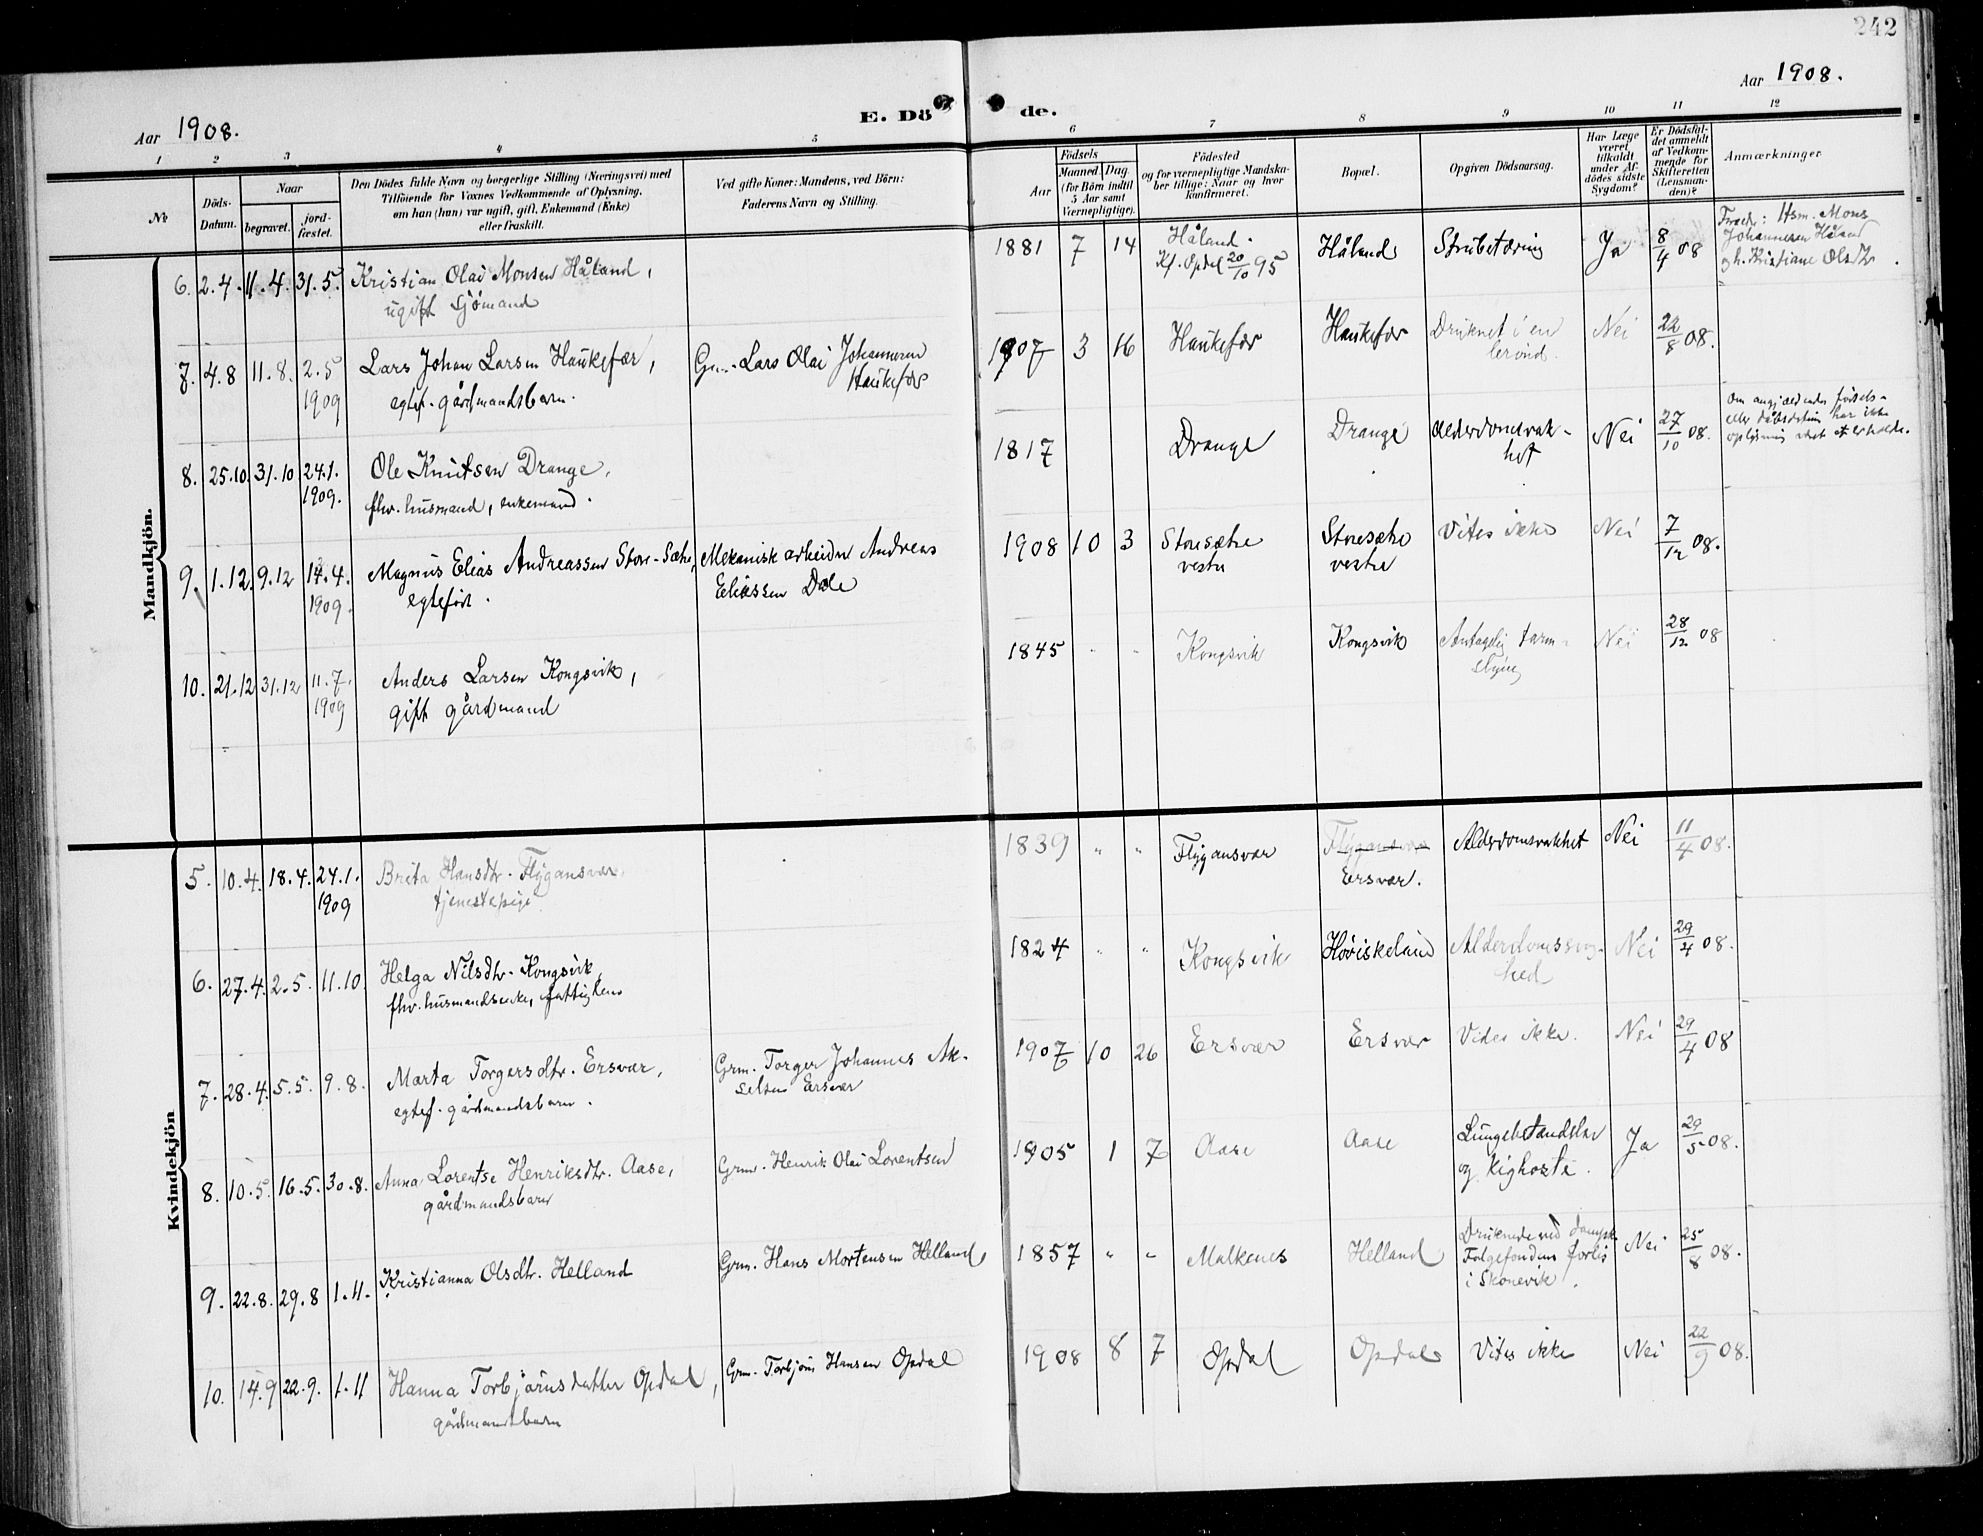 242
Aar 1908.
Aar 1908.
E. Dö de.
1 2 3 4 5 6 7 8 9 10 11 12
№
Döds-
Datum.
Naar
begravet.
jord-
fæstet.
Den Dödes fulde Navn og borgerlige Stilling (Næringsvei) med
Tilföiende for Voxnes Vedkommende af Oplysning,
om han (hun) var ugift, gift, Enkemand (Enke)
eller fraskilt.
Ved gifte Koner: Mandens, ved Börn:
Faderens Navn og Stilling.
Födsels
Aar
Maaned. Dag.
(for Börn indtil
5 Aar samt
Værnepligtige).
Födested
og for værnepligtige Mandska-
ber tillige: Naar og hvor
konfirmeret.
Bopæl.
Opgiven Dödsaarsag.
Har Læge
været
tilkaldt
under Af-
dödes sidste
Sygdom?
Er Dödsfal-
det anmeldt
af Vedkom-
mende for
Skifteretten
(Lensman-
den)?
Anmærkninger
Mandkjön.
6. 2.4. 11.4. 31.5. Kristian Olai Monsen Håland,
ugift sjömand
1881 7 14 Håland.
Kf. Opdal 20/10 95
Håland Strubetæring Ja 8/4 08
Foræld: Hsm. Mons
Johannesen Håland
og h. Kristiane Olsdtr.
7. 4.8 11.8. 2.5
1909
Lars Johan Larsen Haukefær,
egtef. gårdmandsbarn.
Gm. Lars Olai Johannesen
Haukefær
1907 3 16 Haukefær Haukefær Druknet i en
brönd.
Nei 22/8 08.
8. 25.10. 31.10 24.1.
1909.
Ole Knutsen Drange,
fhv. husmand, enkemand.
1817 Drange Drange Alderdomsvak-
het
Nei 27/10 08.
Om angjældendes födsels-
eller dåbsdatum har ikke
oplysning været at erholde.
9. 1.12. 9.12 14.4.
1909.
Magnus Elias Andreassen Store-Sætre,
egtefödt.
Mekanisk arbeider Andreas
Eliassen Dale
1908 10 3 Storesætre
vestre
Storesætre
vestre
Vites ikke Nei 7/12 08.
10. 21.12 31.12 11.7.
1909
Anders Larsen Kongsvik,
gift gårdmand
1845 " " Kongsvik Kongsvik Antagelig tarm-
slyng
Nei 28/12 08
Kvindekjön
5. 10.4. 18.4. 24.1.
1909
Brita Hansdtr. Flygansvær,
tjenestepige
1839 " " Flygansvær Flygansvær
Ersvær.
Alderdomsvakhet Nei 11/4 08.
6. 27.4. 2.5. 11.10. Helga Nilsdtr. Kongsvik,
fhv. husmandsenke, fattiglem
1824 " " Kongsvik Höviskeland Alderdomssvag-
hed
Nei 29/4 08.
7. 28.4. 5.5. 9.8. Marta Torgersdtr. Ersvær,
egtef. gårdmandsbarn.
Grm. Torger Johannes Ak-
selsen Ersvær
1907 10 26 Ersvær Ersvær Vides ikke. Nei 29/4 08
8. 10.5. 16.5. 30.8. Anna Lorentse Henriksdtr. Aase,
gårdmandsbarn
Grm. Henrik Olai Lorentsen
1905 1 7 Aase Aase Lungebetændelse
og kighoste.
Ja 29/5 08.
9. 22.8. 29.8 1.11. Kristianna Olsdtr. Helland
Grm. Hans Mortensen Helland,
1857 " " Malkenes Helland Druknede ved dampsk.
Folgefondens forlis
i Skonevik.
Nei 25/8 08.
10. 14.9 22.9. 1.11 Hanna Torbjörnsdatter Opdal,
gårdmandsbarn
Grm. Torbjörn Hansen Opdal
1908 8 7 Opdal Opdal Vites ikke Nei 22/9 08.